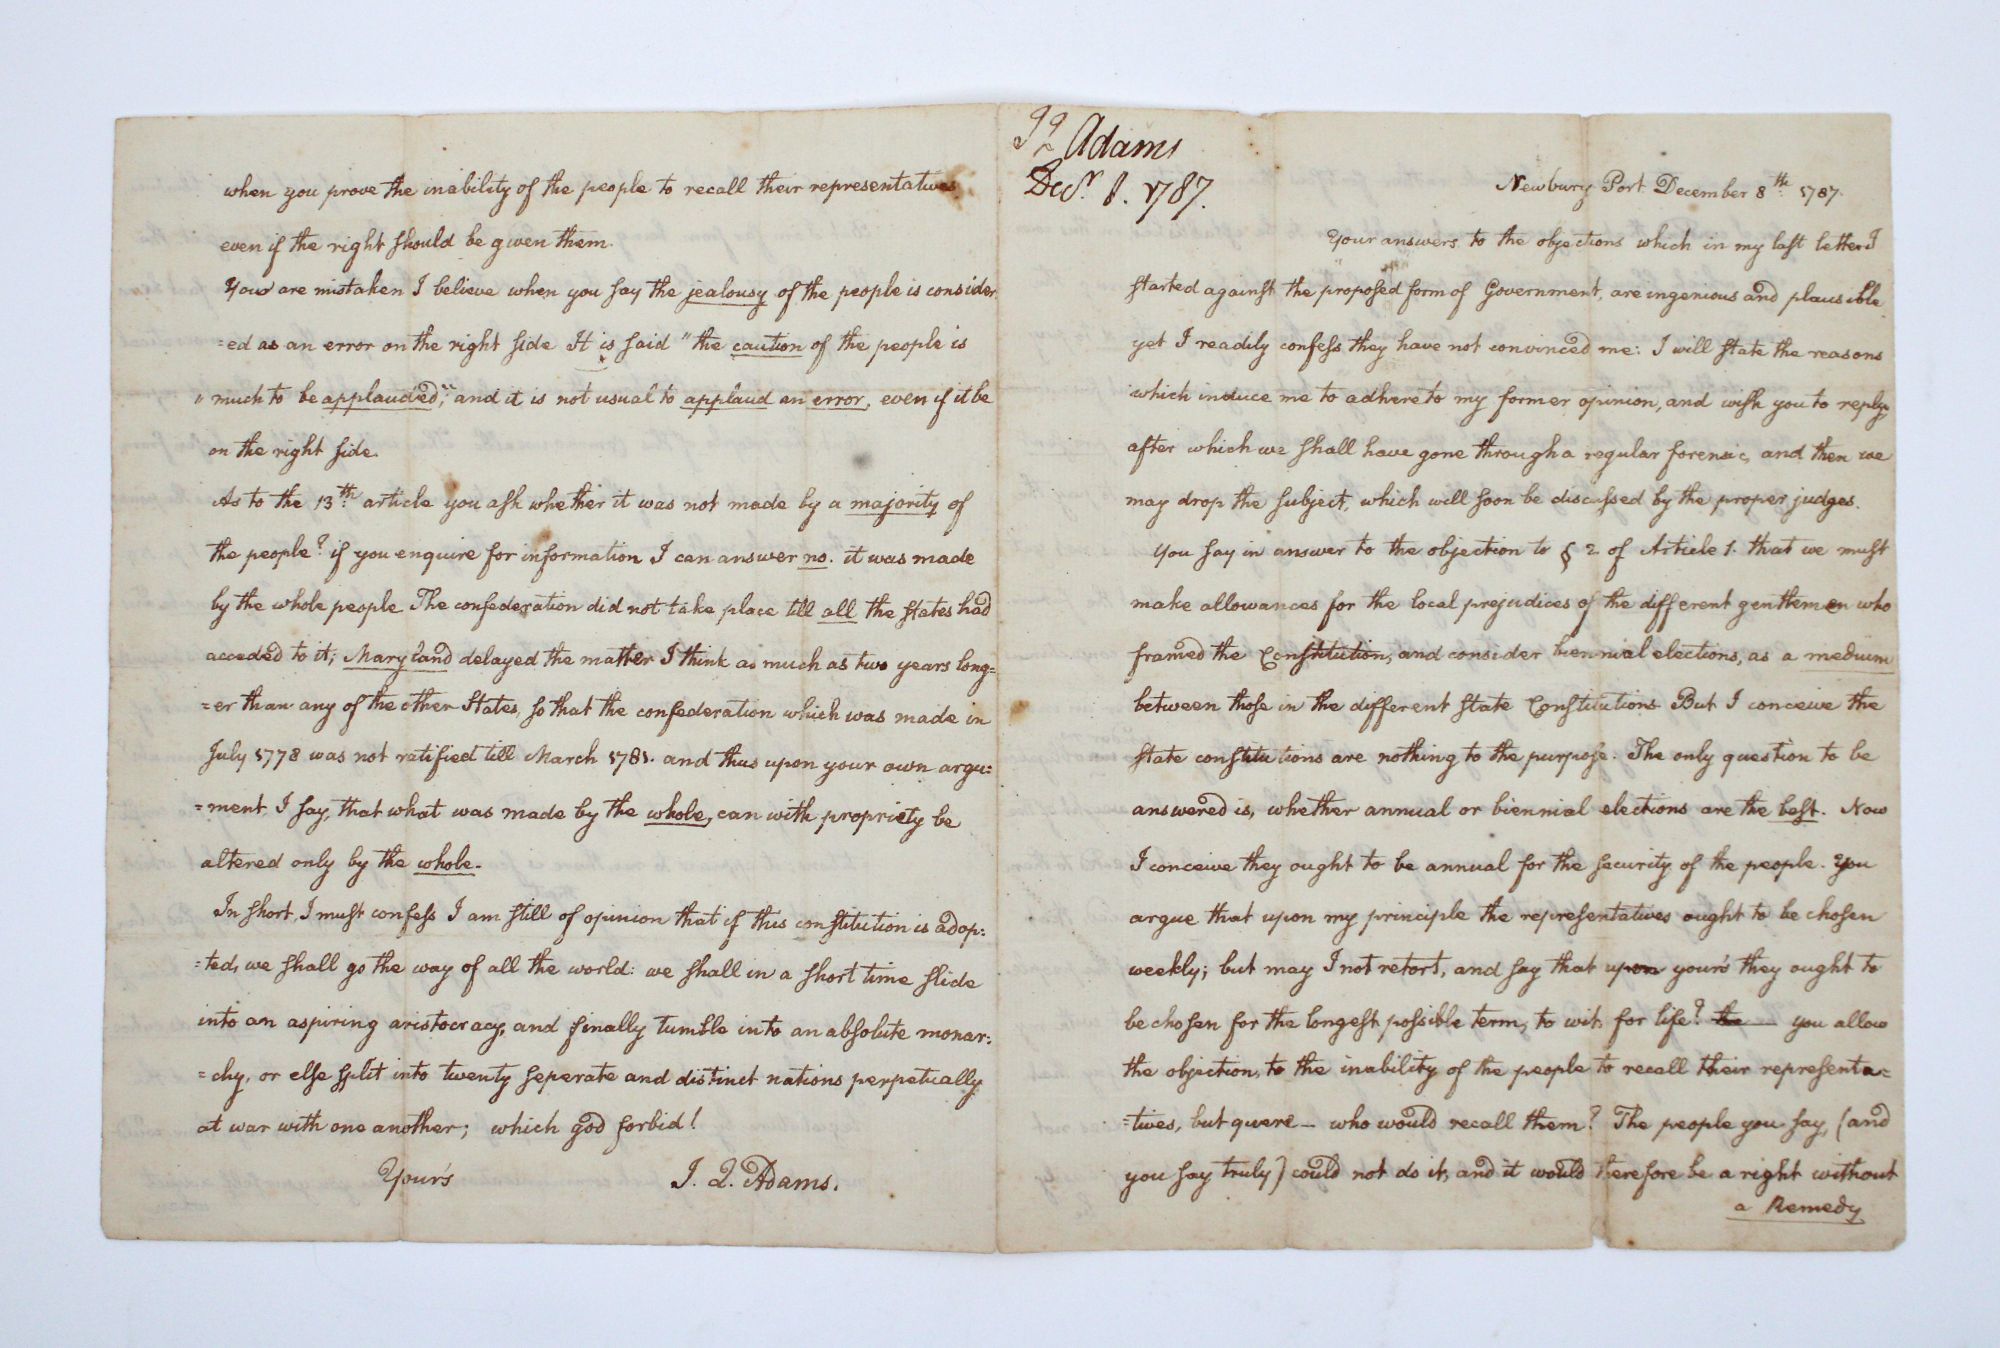 Jn Q Adams
Decr. 8. 1787.
Newbury Port December 8th 1787.
Your answers to the objections which in my last letter I
started against the proposed form of Government, are ingenious and plausible
yet I readily confess they have not convinced me: I will state the reasons
which induce me to adhere to my former opinion, and wish you to reply,
after which we shall have gone through a regular forensic, and then we
may drop the subject, which will soon be discussed by the proper judges.
You say in answer to the objection to § 2 of Article 1. that we must
make allowances for the local prejudices of the different gentlemen who
framed the Constitution, and consider biennial elections, as a medium
between those in the different state Constitutions But I conceive the
state constitutions are nothing to the purpose. The only question to be
answered is, whether annual or biennial elections are the best. Now
I conceive they ought to be annual for the security of the people. You
argue that upon my principle the representatives ought to be chosen
weekly; but may I not retort, and say that upon your's they ought to
be chosen for the longest possible term, to wit, for life? the — you allow
the objection, to the inability of the people to recall their representa=
=tives, but quere — who would recall them? The people you say, (and
you say truly) could not do it, and it would therefore be a right without
a Remedy
when you prove the inability of the people to recall their representatives
even if the right should be given them.
You are mistaken I believe when you say the jealousy of the people is consider
=ed as an error on the right side It is said "the caution of the people is
" much to be applauded," and it is not usual to applaud an error, even if it be
on the right side.
As to the 13th article you ask whether it was not made by a majority of
the people? if you enquire for information I can answer no. it was made
by the whole people The confederation did not take place till all the states had
acceded to it; Maryland delayed the matter I think as much as two years long=
=er than any of the other States, so that the confederation which was made in
July 1778 was not ratified till March 1781. and thus upon your own argu=
=ment I say, that what was made by the whole, can with propriety be
altered only by the whole.
In short, I must confess I am still of opinion that if this constitution is adop=
=ted, we shall go the way of all the world: we shall in a short time slide
into an aspiring aristocracy, and finally tumble into an absolute monar=
=chy, or else split into twenty seperate and distinct nations perpetually
at war with one another; which god forbid!
Your's J. Q. Adams.